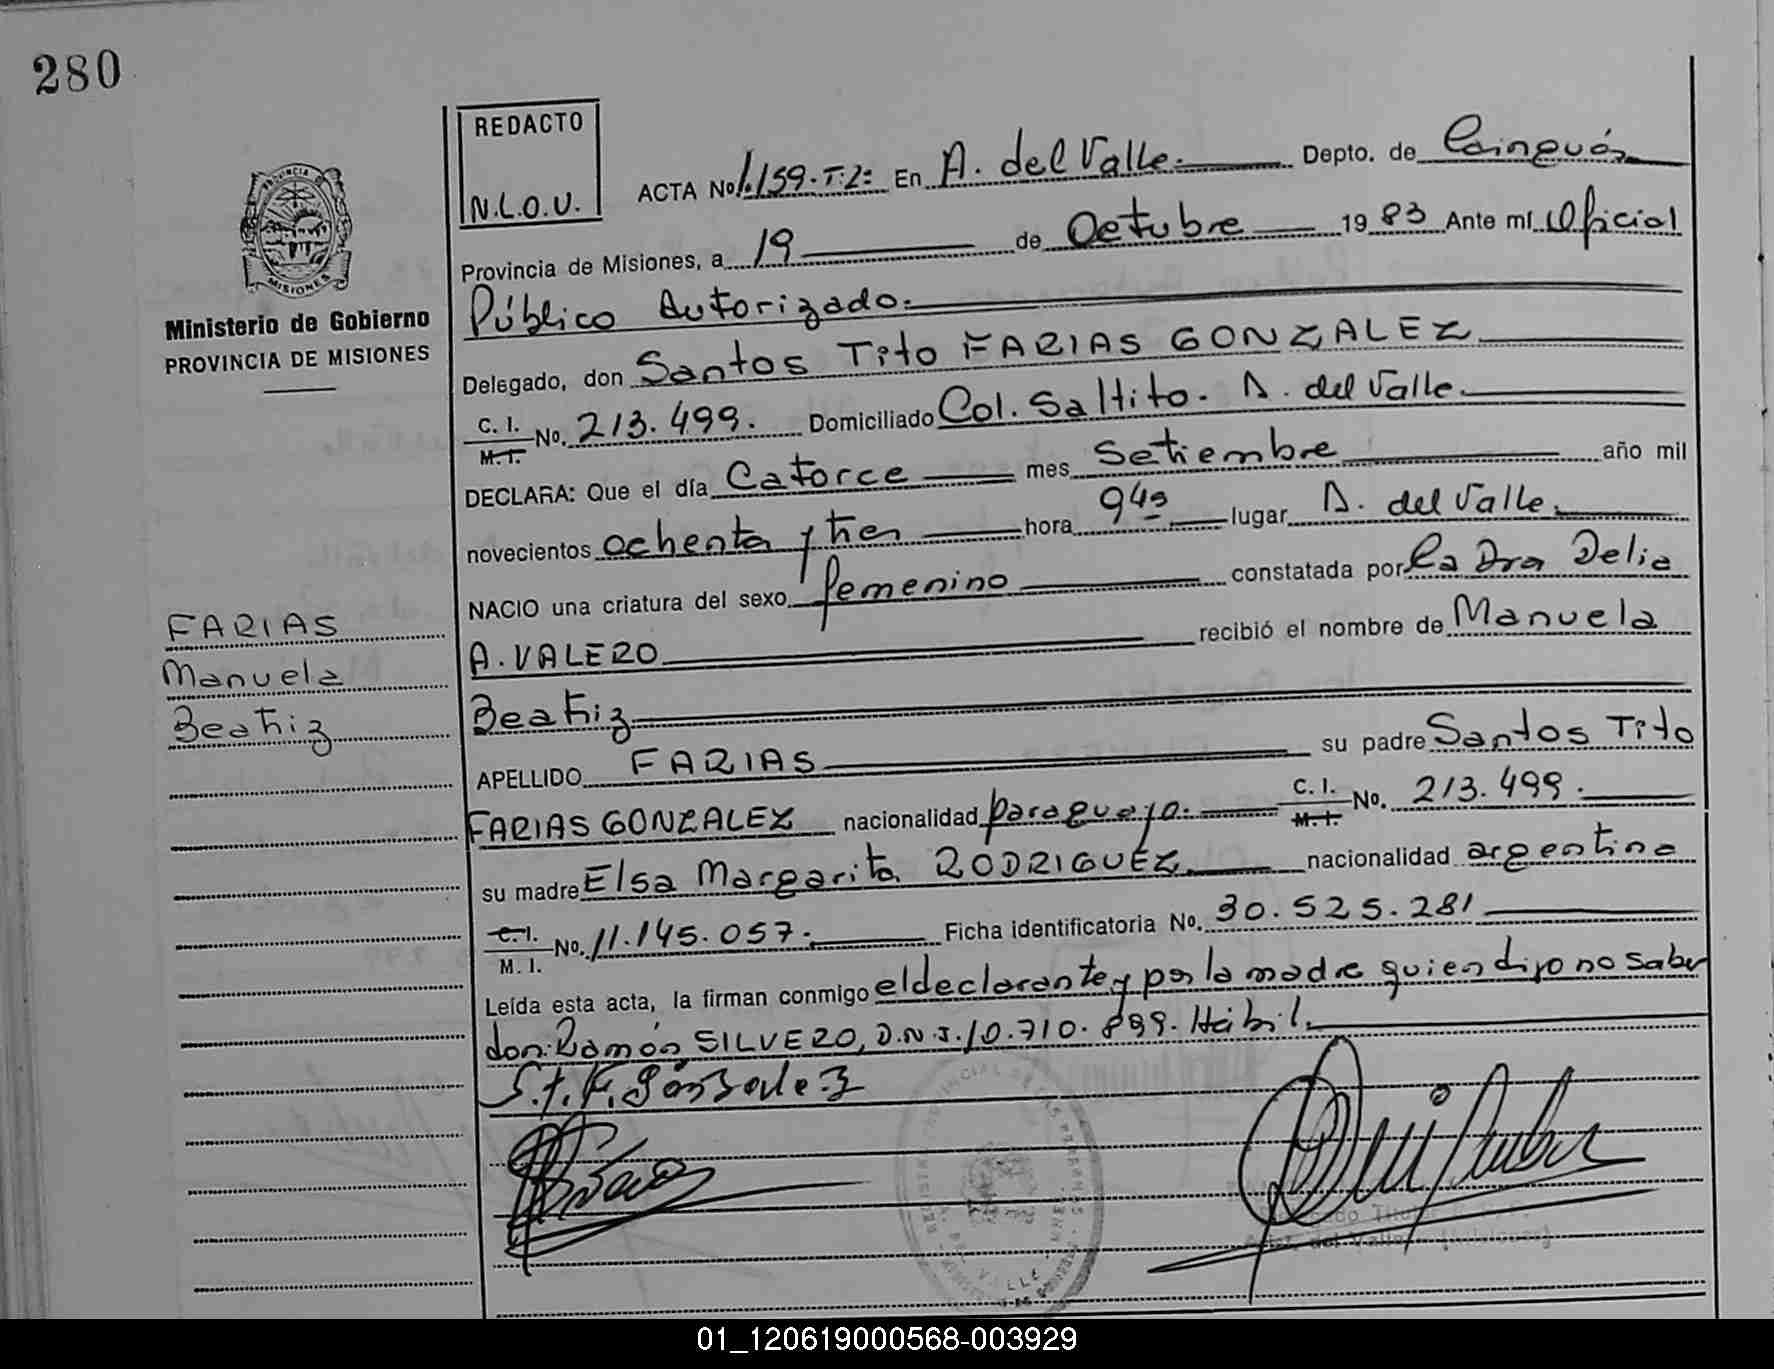 280
REDACTO
N.L.O.U.
ACTA No 1.159.T.2: En A. del Valle. Depto. de Cainguás
Provincia de Misiones, a 19 de Octubre 1983 Ante mí Oficial
Público Autorizado.
Delegado, don Santos Tito FARIAS GONZALEZ
C. I.
M. I. No. 213.499. Domiciliado Col. Saltito. A. del Valle.
DECLARA: Que el día Catorce mes Setiembre año mil
novecientos ochenta y tres hora 9 45 lugar A. del Valle.
NACIO una criatura del sexo femenino constatada por La Dra Delia
A. VALERO recibió el nombre de Manuela
Beatriz
APELLIDO FARIAS su padre Santos Tito
FARIAS GONZALEZ nacionalidad paraguayo. C. I. M. I. No. 213.499.
su madre Elsa Margarita RODRIGUEZ nacionalidad argentina
C. I.
M. I. No. 11.145.057. Ficha identificatoria No. 30.525.281
Leída esta acta, la firman conmigo el declarante y por la madre quien dijo no saber
don: Ramón SILVERO, D.N.I. 10.710.899. Hábil.
S.t.F. Gónzalez
MISIONES
Ministerio de Gobierno
PROVINCIA DE MISIONES
FARIAS
Manuela
Beatriz
01_120619000568-003929